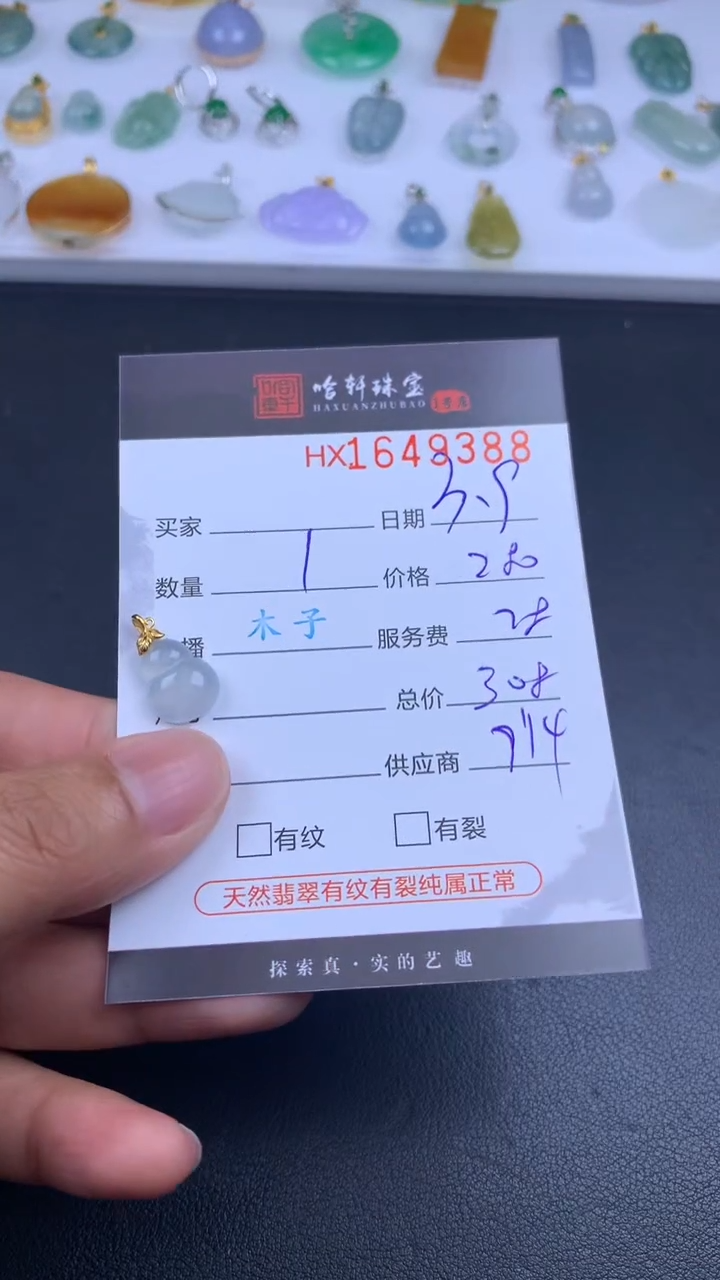 哈轩珠宝
HAXUANZHUBAO 1号店
HX1649388
买家 日期 3.9
数量 1 价格 280
播 木子 服务费 28
总价 308
供应商 714
有纹 有裂
天然翡翠有纹有裂纯属正常
探索真·实的艺趣